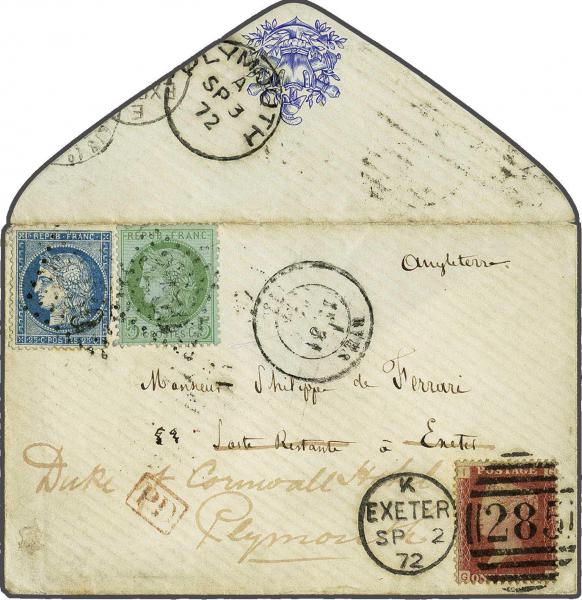 PLYMOUTH
A
SP 3
72
E
REPUB. FRANC.
25 C. POSTES 25 C.
REPUB. FRANC.
5 C. 5
Angleterre
Monsieur Philippe de Ferrari
Poste Restante à Exeter
Duke of Cornwall Hotel
Plymouth
PD
K
EXETER
SP 2
72
POSTAGE
285
G